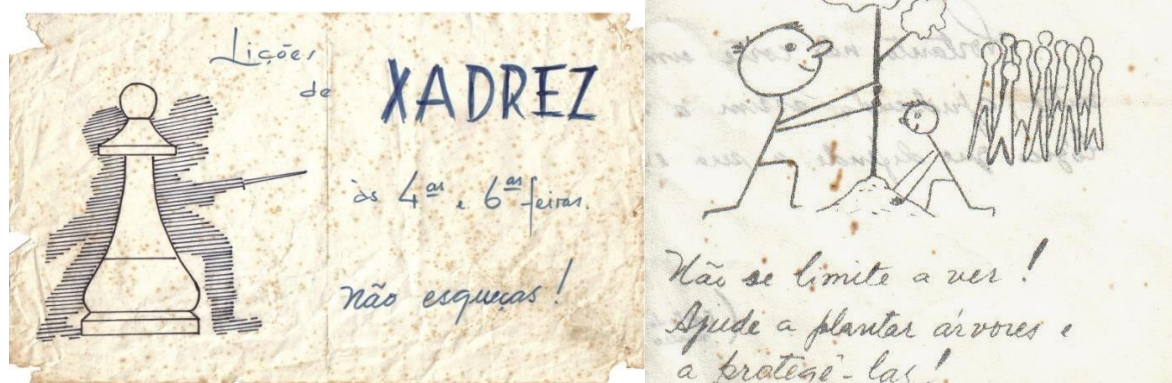 Lições
de
XADREZ
às 4as e 6as feiras.
não esqueças!
Não se limite a ver!
Ajude a plantar árvores e
a protegê-las!